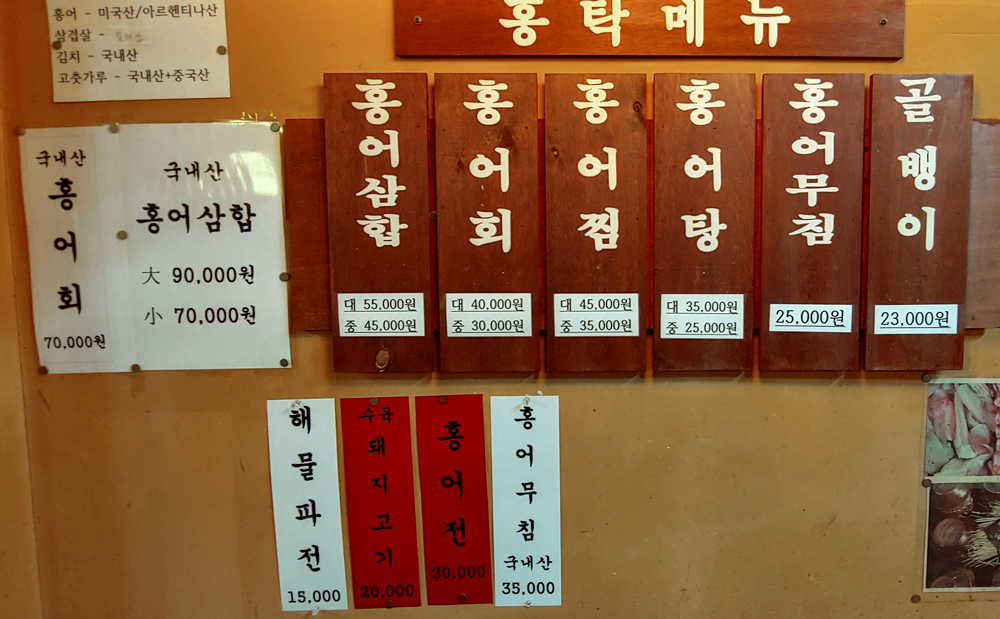 홍어 - 미국산/아르헨티나산
삼겹살 -
김치 - 국내산
고춧가루 - 국내산+중국산
홍탁메뉴
국내산
홍어회
70,000원
국내산
홍어삼합
大 90,000원
小 70,000원
홍어삼합
대 55,000원
중 45,000원
홍어회
대 40,000원
중 30,000원
홍어찜
대 45,000원
중 35,000원
홍어탕
대 35,000원
중 25,000원
홍어무침
25,000원
골뱅이
23,000원
해물파전
15,000
수육
돼지고기
20,000
홍어전
30,000
홍어무침
국내산
35,000